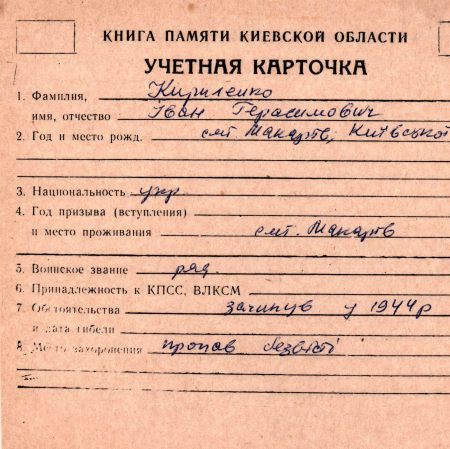 КНИГА ПАМЯТИ КИЕВСКОЙ ОБЛАСТИ
УЧЕТНАЯ КАРТОЧКА
1. Фамилия, Кириленко
имя, отчество Іван Герасимович
2. Год и место рожд. смт Макарів, Київської
3. Национальность укр
4. Год призыва (вступления)
и место проживания смт. Макарів
5. Воинское звание ряд.
6. Принадлежность к КПСС, ВЛКСМ
7. Обстоятельства загинув у 1944 р
и дата гибели
8. Место захоронения пропав безвісті